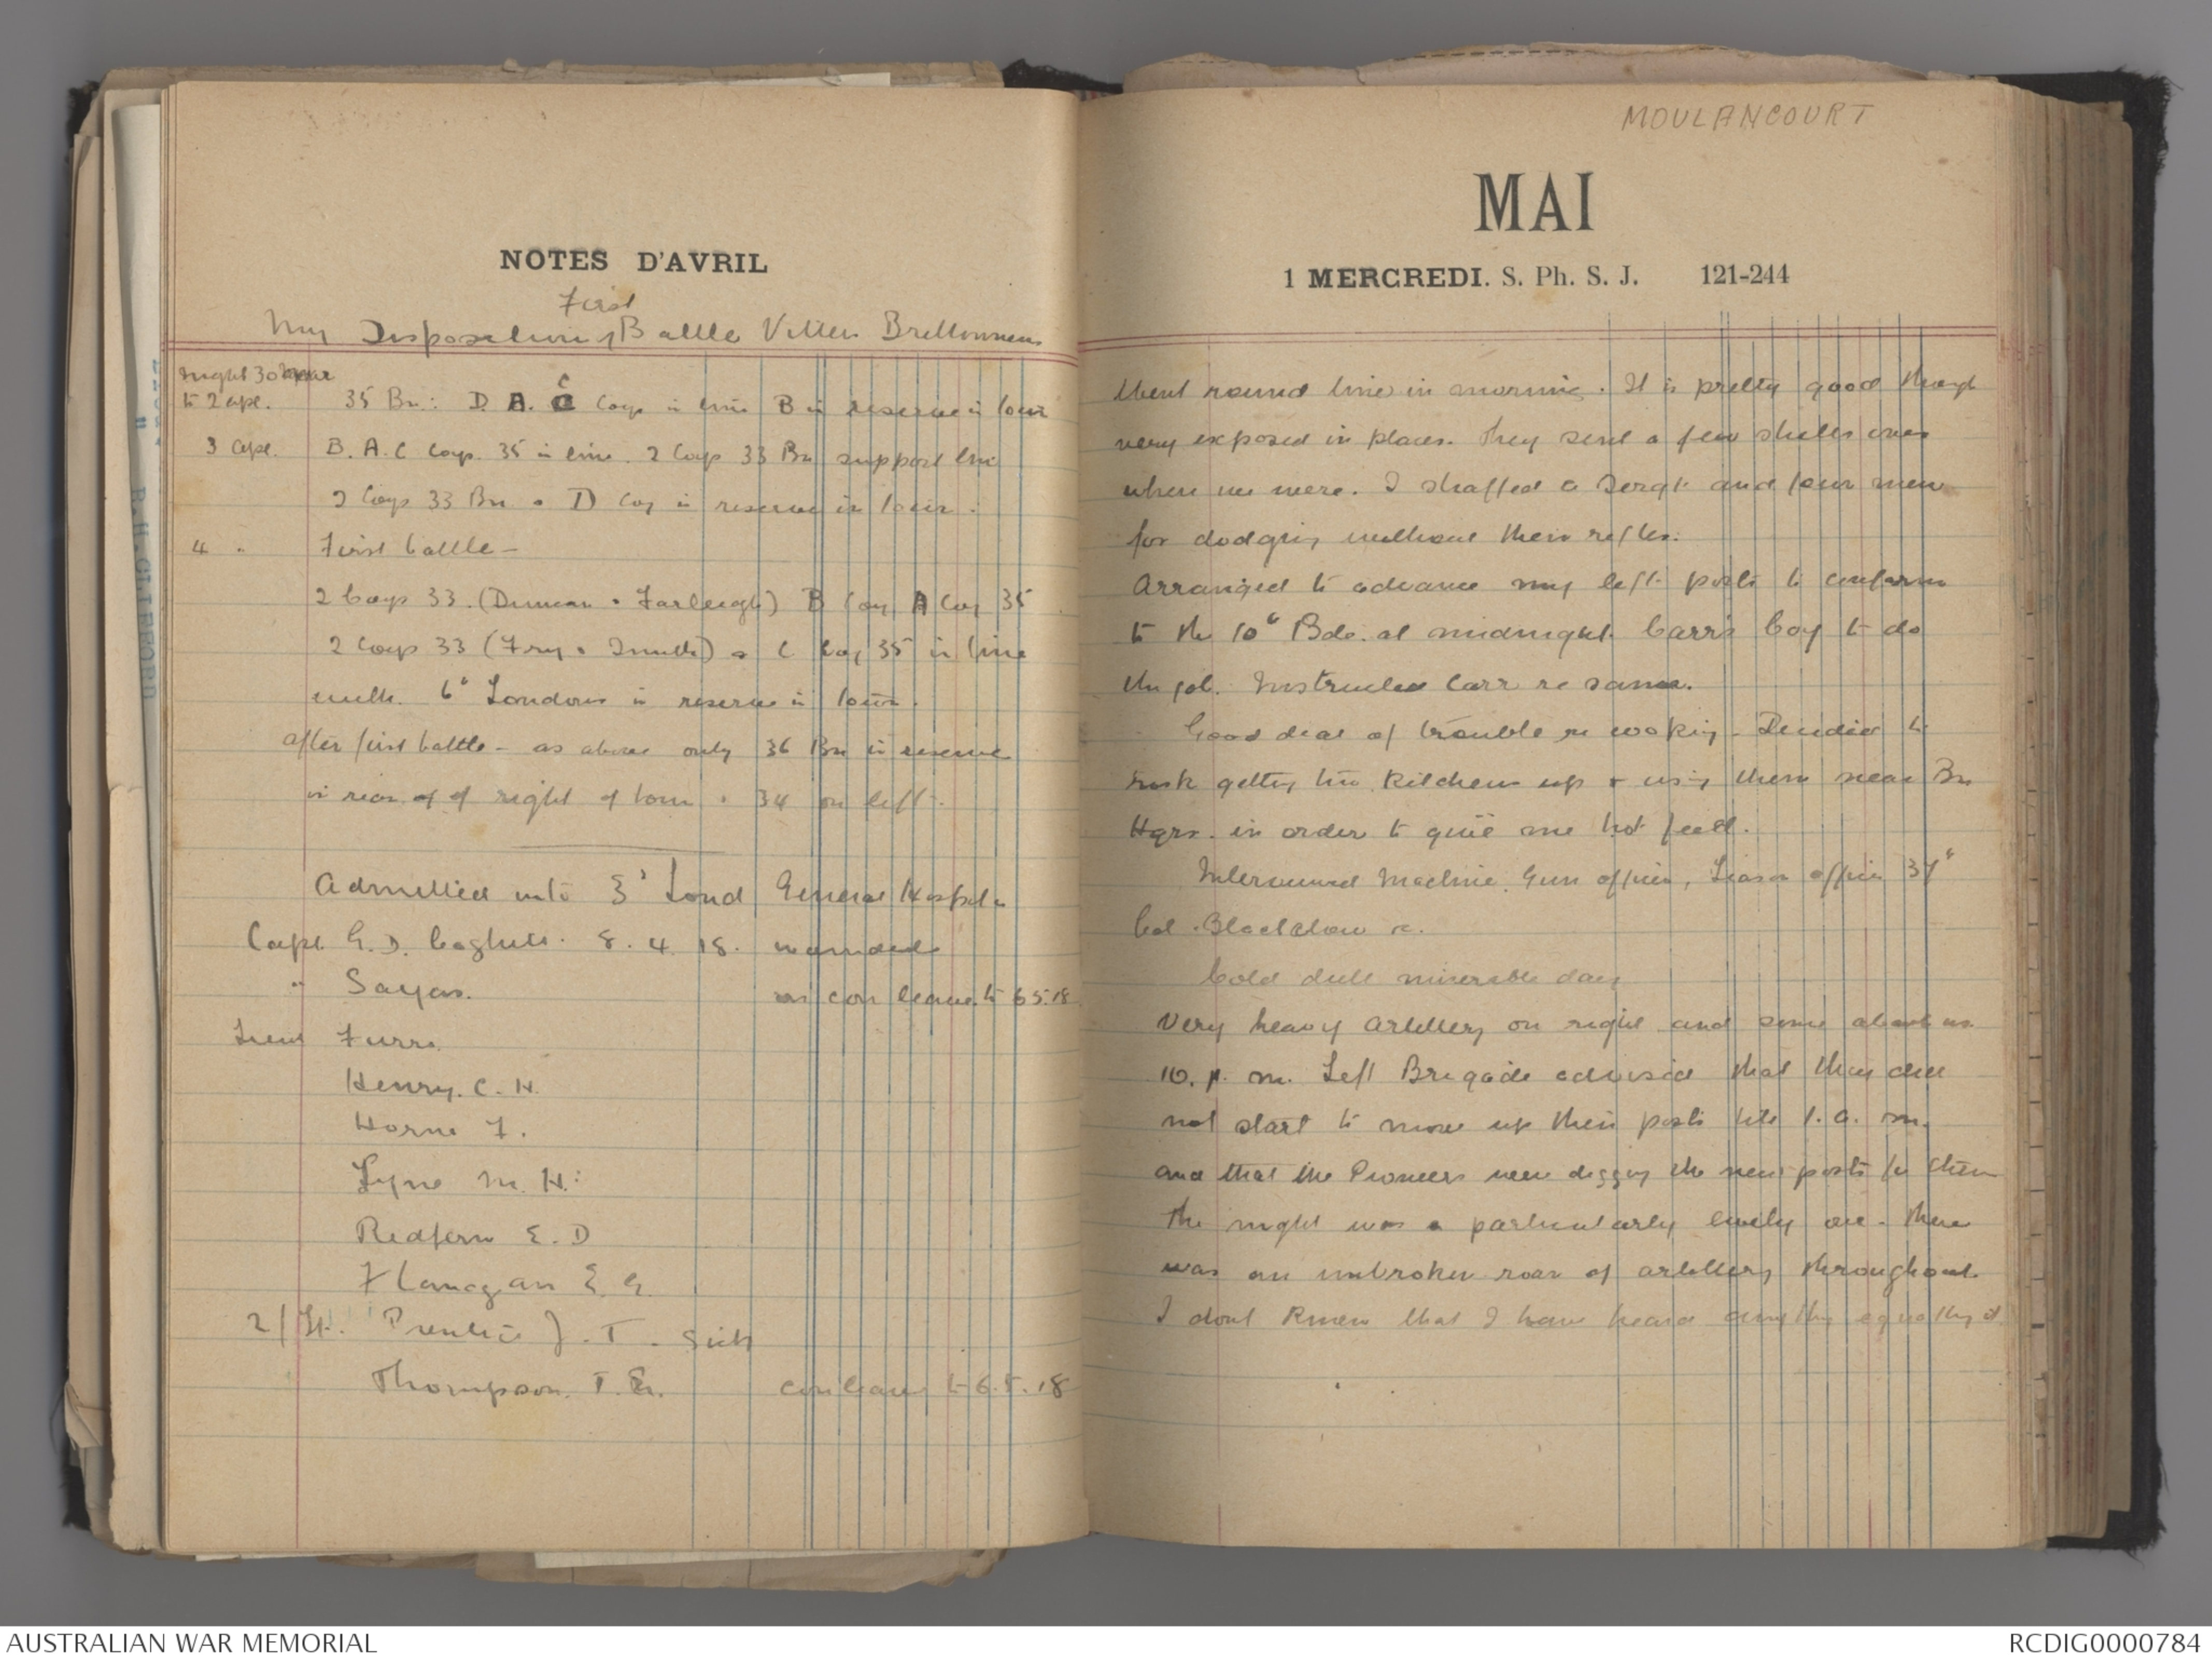 NOTES D'AVRIL
First
My Disposition Battle Villers Bretonneux
night 30 Mar
to 2 Apl. 35 Bn: D. A. C Coys in line B in reserve in town
3 Apl. B. A. C Coys. 35 in line. 2 Coys 33 Bn support line
2 Coys 33 Bn & D Coy in reserve in town.
4 " First battle -
2 Coys 33. (Duncan & Farleigh) B Coy A Coy 35
2 Coys 33 (Fry & ) & C Coy 35 in line
with 6th Londons in reserve in town.
After first battle - as above only 36 Bn in reserve
in rear of of right of town & 34 on left.
Admitted into 3rd Lond General Hospital
Capt. G. D. Coghill. 8. 4. 18. wounded
" Sayers. on con leave to 6.5.18
Lieut Furse
Henry. C. H.
Horne F.
Lyne M. H.
Redfern E. D
Flanagan E. G.
2/Lt. Prentice J. T. Sick
Thompson. T. con leave to 6.5.18
MOULANCOURT
MAI
1 MERCREDI. S. Ph. S. J. 121-244
Went round line in morning. It is pretty good though
very exposed in places. They sent a few shells over
when we were. I straffed a Sergt and four men
for dodging without their rifles.
Arranged to advance my left posts to conform
to the 10th Bde. at midnight. Carr's Coy to do
the job. Instructed Carr re same.
Good deal of trouble re cooking - Decided to
risk getting two kitchens up & using them near Bn
Hqrs. in order to give one hot feed.
Interviewed Machine Gun officer, Liason officer 37th
Col. Blacklow &c.
Cold dull miserable day
Very heavy artillery on right and some about us
10. p. m. Left Brigade advised that they did
not start to move up their posts till 1. a. m.
and that the Pioneers were digging the new posts for them
The night was a particularly lively one - there
was an unbroken roar of artillery throughout.
I dont know that I have heard anything equalling it
AUSTRALIAN WAR MEMORIAL
RCDIG0000784